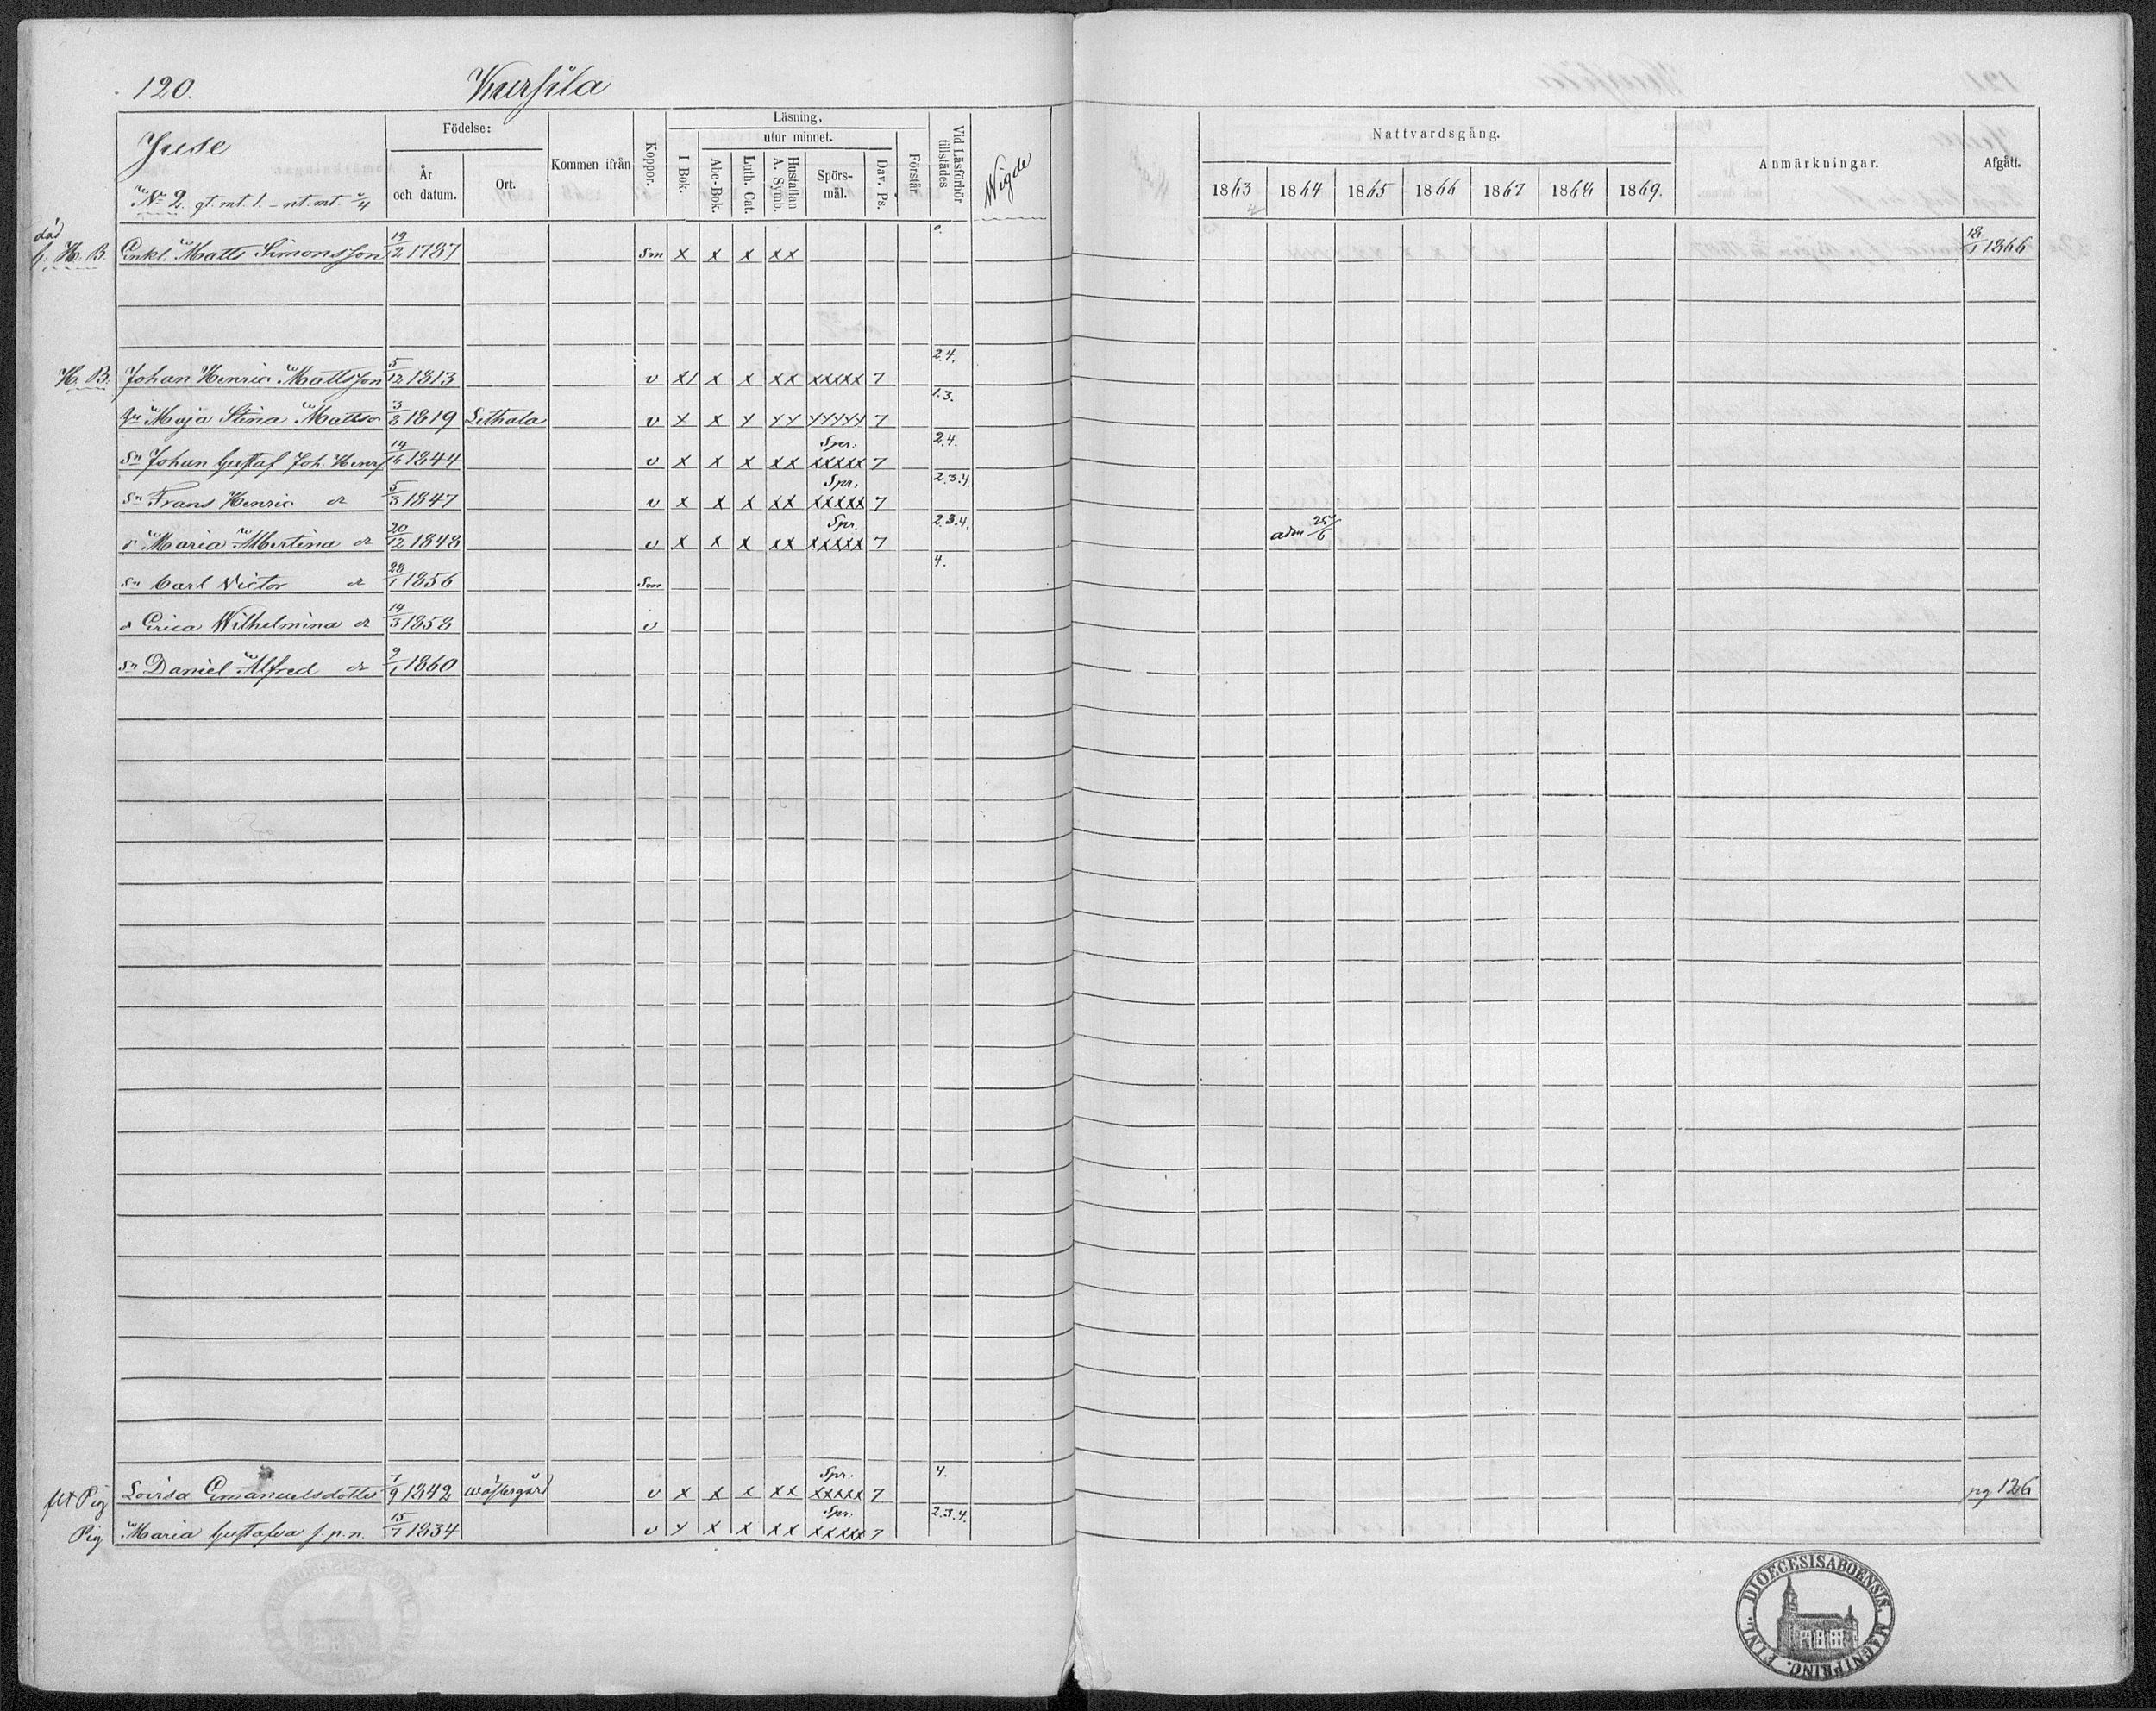 120. Kursila
Juse
No 2. gt. mt. 1. - nt. mt.
Födelse:
År och datum.
Ort.
Kommen ifrån
Koppor.
Läsning,
utur minnet.
I Bok.
Abc-Bok.
Luth. Cat.
Hustaflan A. Symb.
Spörs-mål.
Dav. Ps.
Förstår
Vid Läsförhör tillstädes
Wigde
Nattvardsgång.
1863 1864 1865 1866 1867 1868 1869.
Anmärkningar.
Afgått.
död
f. H. B. Enkl. Matts Simonsson 19/2 1787 Sm x x x xx 0. 18/1 1866
H. B. Johan Henric Mattsson 5/12 1813 v x/ x x xx xxxxx 7 2.4.
hu Maja Stina Mattsdr 3/8 1819 Lethala v x x x xx xxxxx 7 1.3.
sn Johan Gustaf Joh. Henrs 14/6 1844 v x x x xx Spr. xxxxx 7 2.4.
sn Frans Henric dr 5/3 1847 v x x x xx Spr. xxxxx 7 2.3.4.
dr Maria Albertina dr 20/12 1848 v x x x xx Spr. xxxxx 7 2.3.4. adm 25/6
sn Carl Victor dr 28/1 1856 Sm 4.
dr Erica Wilhelmina dr 14/3 1858 v
sn Daniel Alfred dr 9/1 1860
flt Pig Lovisa Emanuelsdotter 7/9 1842 Wästergård v x x x xx Spr. xxxxx 7 4. pg 126
Pig Maria Gustafva f. p. n. 15/7 1834 v x x x xx Spr. xxxxx 7 2.3.4.
DIOECESIS ABOENSIS. MAGNI PRINC. FINL.